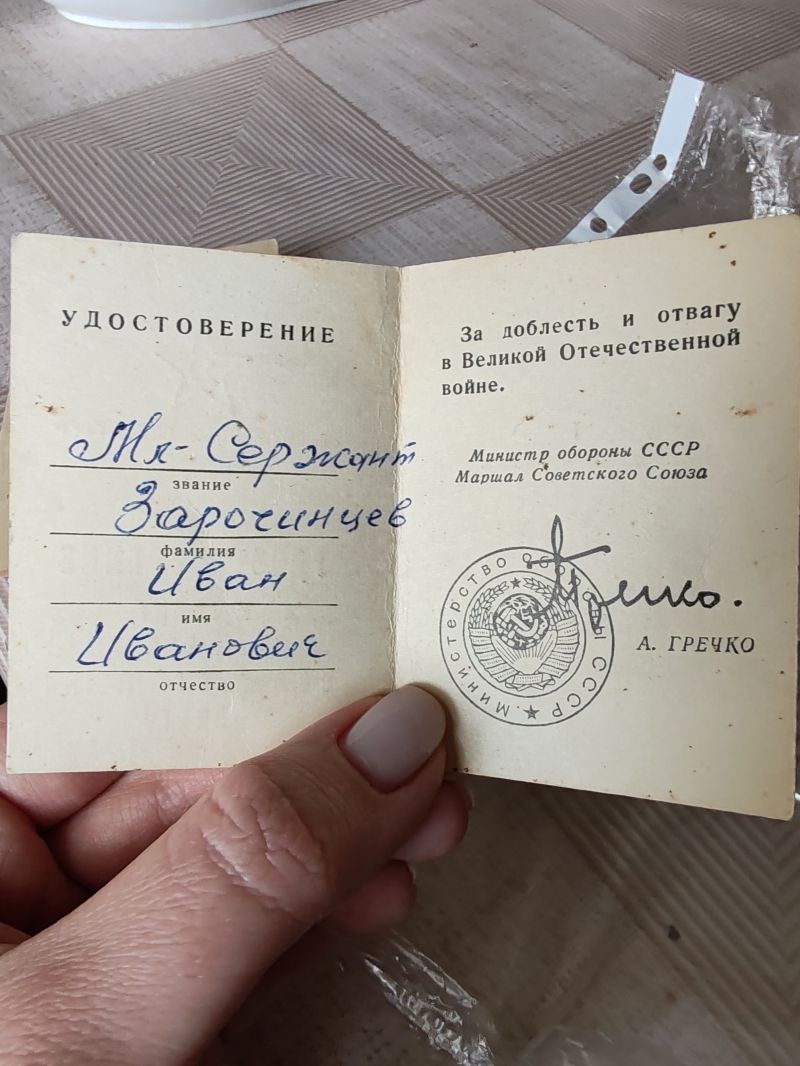 УДОСТОВЕРЕНИЕ
Мл-Сержант
звание
Зарочинцев
фамилия
Иван
имя
Иванович
отчество
За доблесть и отвагу
в Великой Отечественной
войне.
Министр обороны СССР
Маршал Советского Союза
МИНИСТЕРСТВО ОБОРОНЫ СССР
Гречко.
А. ГРЕЧКО